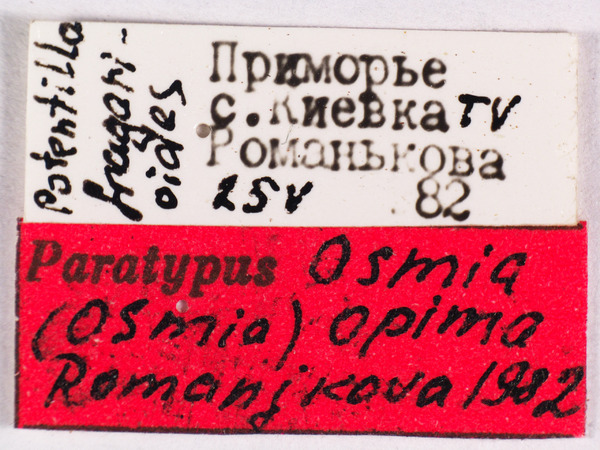 Potentilla
fragari-
oides
Приморье
с. Киевка TV
Романькова
25 V 82
Paratypus Osmia
(Osmia) opima
Romanjkova 1982